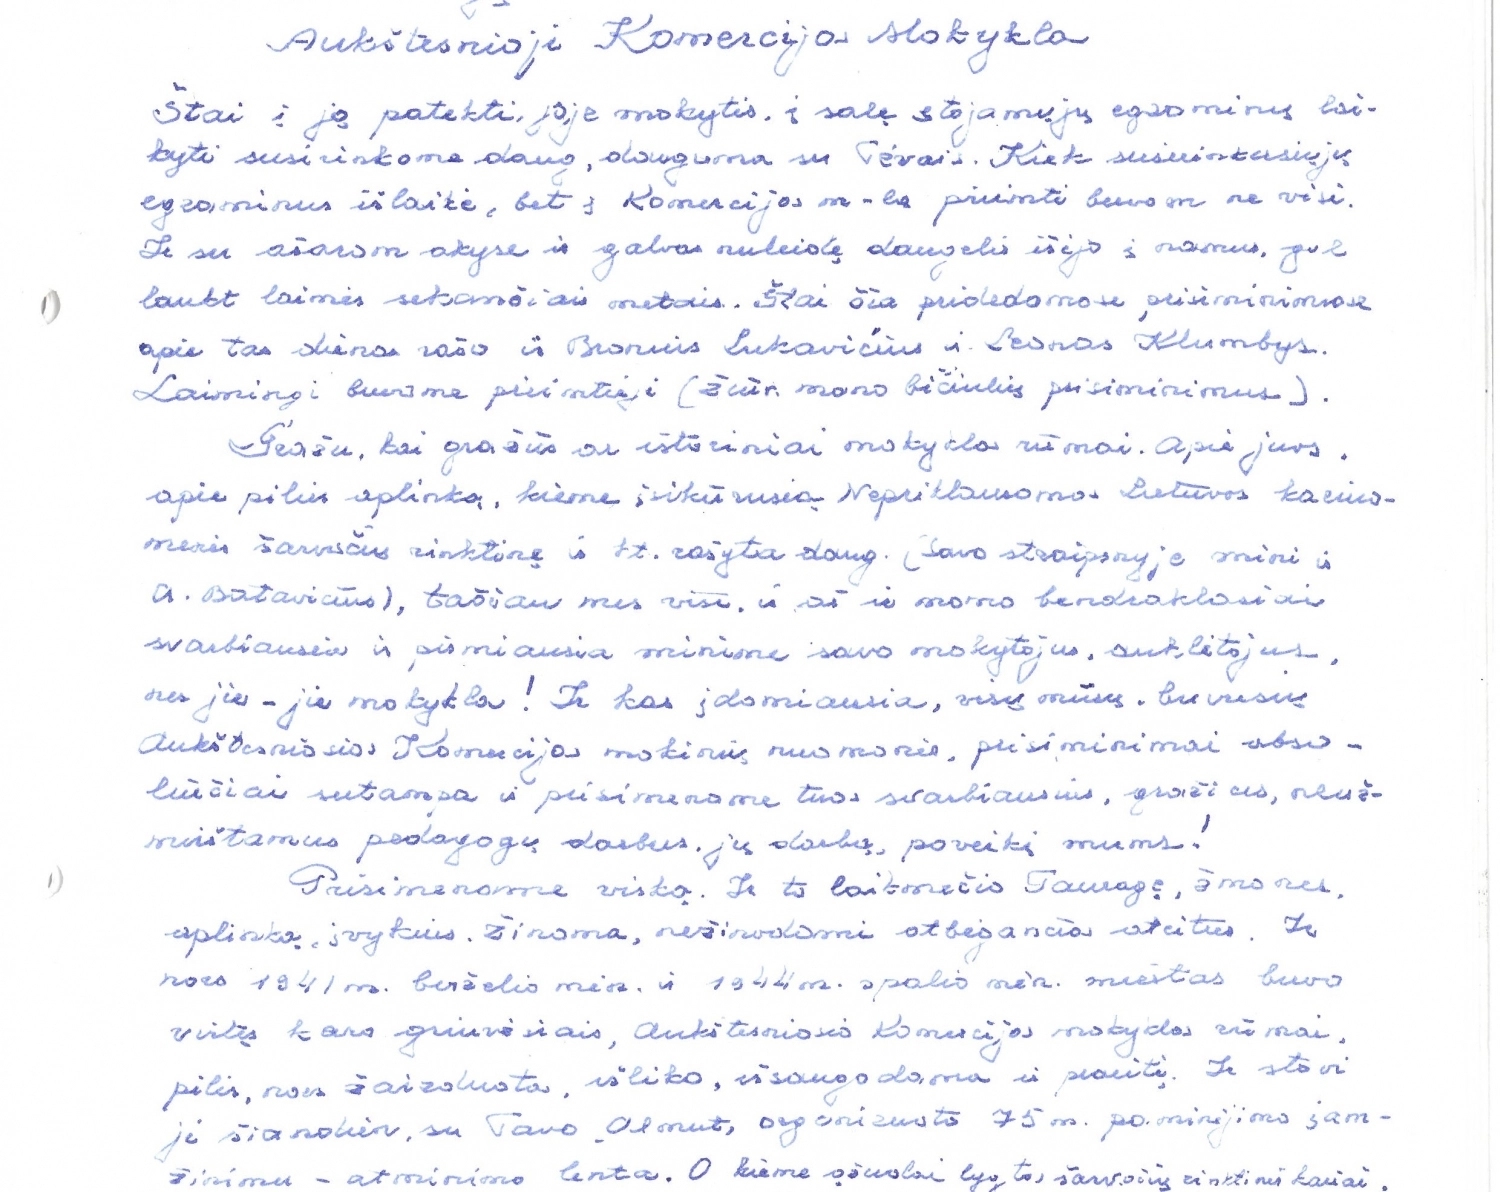 Aukštesnioji Komercijos Mokykla
Štai į ją patekti, joje mokytis, į salę stojamųjų egzaminų lai-
kyti susirinkome daug, dauguma su Tėvais. Kiek susirinkusiųjų
egzaminus išlaikė, bet į Komercijos m-lą priimti buvom ne visi.
Ir su ašarom akyse ir galvas nuleidę daugelis išėjo į namus, gal
laukt laimės sekančiais metais. Štai čia pridedamose prisiminimose
apie tas dienas rašo ir Bronius Lukavičius ir Leonas Klumbys.
Laimingi buvome priimtieji (žiūr. mano bičiulių prisiminimus).
Gražu, kai gražūs ar istoriniai mokyklos rūmai. Apie juos,
apie pilies aplinką, kieme įsikūrusią Nepriklausomos Lietuvos kariuo-
menės šarvuočių rinktinę ir kt. rašyta daug. (Savo straipsnyje mini ir
A. Batavičius), tačiau mes visi, ir aš ir mano bendraklasiai
svarbiausia ir pirmiausia minime savo mokytojus, auklėtojus,
nes jie - jie mokykla! Ir kas įdomiausia, visų mūsų, buvusių
Aukštesniosios Komercijos mokinių nuomonės, prisiminimai abso-
liučiai sutampa ir prisimename tuos svarbiausius, gražius, neuž-
mirštamus pedagogų darbus, jų darbą, poveikį mums!
Prisimename viską. Ir to laikmečio Tauragę, žmones,
aplinką, įvykius. Žinoma, nežinodami atbėgančios ateities. Ir
nors 1941 m. birželio mėn. ir 1944 m. spalio mėn. miestas buvo
virtęs karo griuvėsiais, Aukštesniosios Komercijos mokyklos rūmai,
pilis, nors žaizduota, išliko, išsaugodama ir praeitį. Ir stovi
ji šiandien, su Tavo Almut, organizuoto 75 m. paminėjimo įam-
žinimu - atminimo lenta. O kieme ąžuolai lyg tos šarvočių rinktinės kariai.